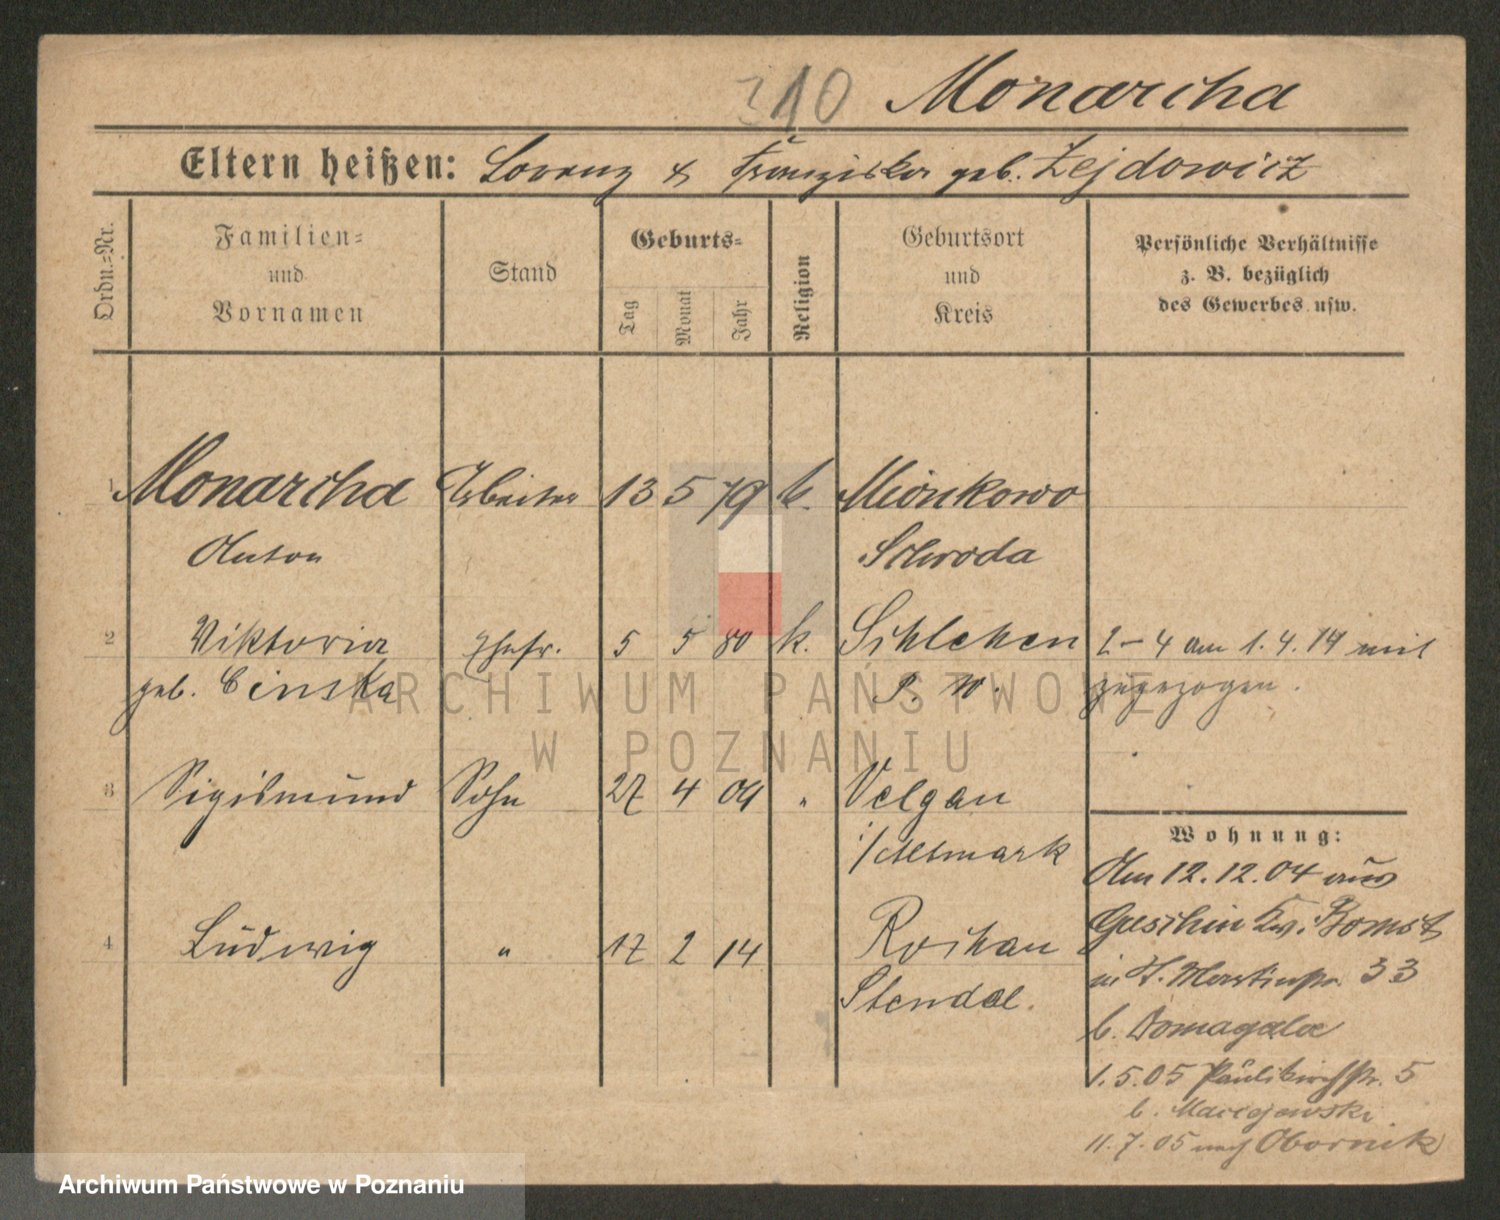 310 Monarcha
Eltern heißen: Lorenz & Franziska geb. Zejdowicz
Ordn.-Nr.
Familien-
und
Vornamen
Stand
Geburts-
Tag
Monat
Jahr
Religion
Geburtsort
und
Kreis
Persönliche Verhältnisse
z. B. bezüglich
des Gewerbes usw.
1 Monarcha Arbeiter 13 5 79 k. Mionkowo
Anton Schroda
2 Viktoria Ehefr. 5 5 80 k. Schlehen 2-4 am 1.4.14 mit
geb. Cinska P. W. zugezogen.
3 Sigismund Sohn 27 4 09 " Velgau
i/Altmark
4 Ludwig " 17 2 14 Rochau
Stendal.
Wohnung:
Am 12.12.04 aus
Kr. Bomst
in St. Martinstr. 33
b. Domagala
1.5.05 Paulikirchstr. 5
b. Maciejewski
11.7.05 nach Obornik
ARCHIWUM PAŃSTWOWE
W POZNANIU
Archiwum Państwowe w Poznaniu